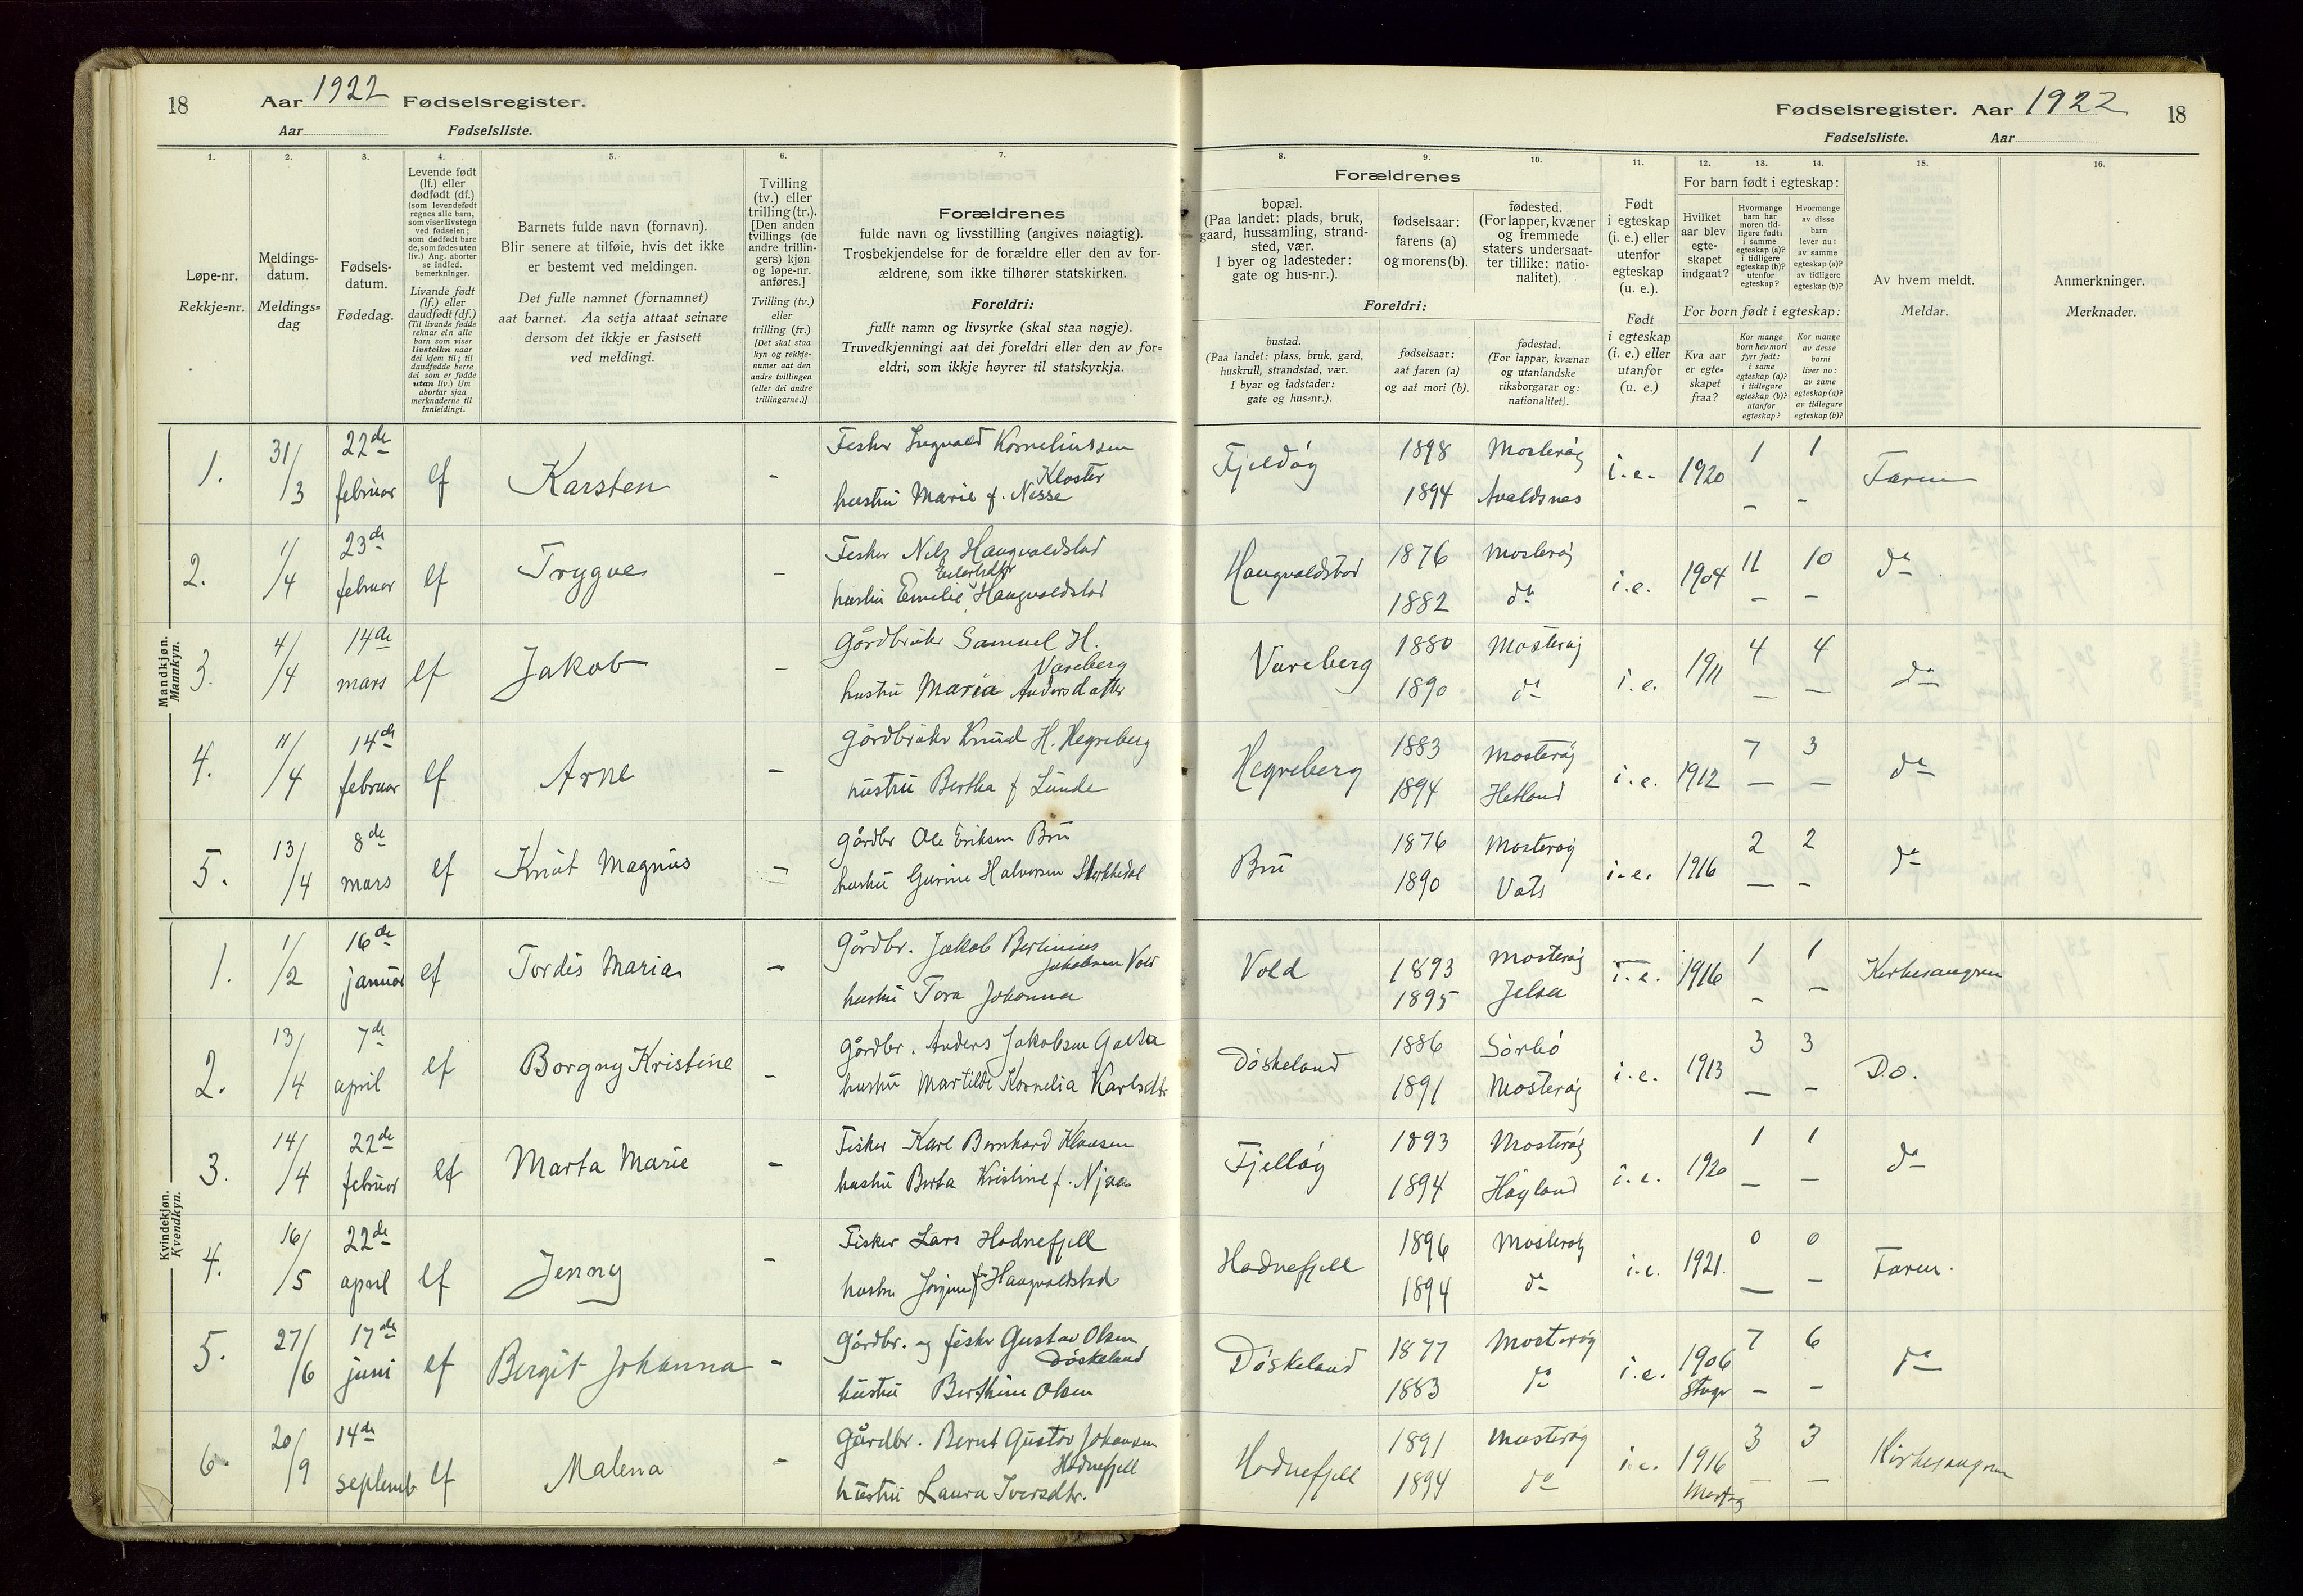 18 Aar 1922 Fødselsregister.
Aar Fødselsliste.
Fødselsregister. Aar 1922 18
Fødselsliste. Aar
1. 2. 3. 4. 5. 6. 7.
Løpe-nr.
Rekkje=nr.
Meldings-
datum.
Meldings=
dag
Fødsels-
datum.
Fødedag.
Levende født
(lf.) eller
dødfødt (df.)
(som levendefødt
regnes alle barn,
som viser livstegn
ved fødselen;
som dødfødt bare
de, som fødes uten
liv.) Ang. aborter
se indled.
bemerkninger.
Livande født
(lf.) eller
daudfødt (df.)
(Til livande fødde
reknar ein alle
barn som viser
livsteikn naar
dei kjem til; til
daudfødde berre
dei som er fødde
utan liv.) Um
abortar sjaa
merknaderne til
innleidingi.
Barnets fulde navn (fornavn).
Blir senere at tilføie, hvis det ikke
er bestemt ved meldingen.
Det fulle namnet (fornamnet)
aat barnet. Aa setja attaat seinare
dersom det ikkje er fastsett
ved meldingi.
Tvilling
(tv.) eller
trilling (tr.).
[Den anden
tvillings (de
andre trillin-
gers) kjøn
og løpe-nr.
anføres.]
Tvilling (tv.)
eller
trilling (tr.)
[Det skal staa
kyn og rekkje-
numer aat den
andre tvillingen
(eller dei andre
trillingarne.)]
Forældrenes
fulde navn og livsstilling (angives nøiagtig).
Trosbekjendelse for de forældre eller den av for-
ældrene, som ikke tilhører statskirken.
Foreldri:
fullt namn og livsyrke (skal staa nøgje).
Truvedkjenningi aat dei foreldri eller den av for=
eldri, som ikkje høyrer til statskyrkja.
8. 9. 10. 11. 12. 13. 14. 15. 16.
Forældrenes
bopæl.
(Paa landet: plads, bruk,
gaard, hussamling, strand-
sted, vær.
I byer og ladesteder:
gate og hus-nr.).
fødselsaar:
farens (a)
og morens (b).
fødested.
(For lapper, kvæner
og fremmede
staters undersaat-
ter tillike: natio-
nalitet).
Foreldri:
bustad.
(Paa landet: plass, bruk, gard,
huskrull, strandstad, vær.
I byar og ladstader:
gate og hus=nr.).
fødselsaar:
aat faren (a)
og aat mori (b).
fødestad.
(For lappar, kvænar
og utanlandske
riksborgarar og:
nationalitet).
Født
i egteskap
(i. e.) eller
utenfor
egteskap
(u. e.).
Født
i egteskap
(i. e.) eller
utanfor
(u. e.)
For barn født i egteskap:
Hvilket
aar blev
egte-
skapet
indgaat?
Hvormange
barn har
moren tid-
ligere født:
i samme
egteskap (a)?
i tidligere
egteskap (b)?
utenfor
egteskap?
Hvormange
av disse
barn
lever nu:
av samme
egteskap (a)?
av tidligere
egteskap (b)?
For born født i egteskap:
Kva aar
er egte=
skapet
fraa?
Kor mange
born hev mori
fyrr født:
i same
egteskap (a)?
i tidlegare
egteskap (b)?
utanfor
egteskap?
Kor mange
av desse
borni
liver no:
av same
egteskap (a)?
av tidlegare
egteskap (b)?
Av hvem meldt.
Meldar.
Anmerkninger.
Merknader.
Mandkjøn.
Mannkyn.
1. 31/3 22de februar lf Karsten - Fisker Ingvald Korneliussen Kloster
hustru Marie f. Nesse
Fjeldøy 1898 Mosterøy i.e. 1920 1 1 Faren
1894 Avaldsnes - -
2. 1/4 23de februar lf Trygve - Fisker Nils Haugvaldstad
hustru Emilie Eilertsdtr Haugvaldstad
Haugvaldstad 1876 Mosterøy i.e. 1904 11 10 do
1882 do - -
3. 4/4 14de mars lf Jakob - Gårdbruker Samuel H. Vareberg
hustru Maria Andersdatter
Vareberg 1880 Mosterøy i.e. 1911 4 4 do
1890 do - -
4. 11/4 14de februar lf Arne - Gårdbruker Knud H. Hegreberg
hustru Bertha f Lunde
Hegreberg 1883 Mosterøy i.e. 1912 7 3 do
1894 Hetland - -
5. 13/4 8de mars lf Knut Magnus - Gårdbr Ole Eriksen Bru
hustru Gurine Halvorsen
Bru 1876 Mosterøy i.e. 1916 2 2 do
1890 Vats - -
Kvindekjøn.
Kvendkyn.
1. 1/2 16de januar lf Tordis Maria - Gårdbr. Jakob Bertinius Jakobsen Vold
hustru Tora Johanna
Vold 1893 Mosterøy i.e. 1916 1 1 Kirkesangeren
1895 Jelsa - -
2. 13/4 7de april lf Borgny Kristine - Gårdbr. Anders Jakobsen
hustru Martilde Kornelia Karlsdtr
Døskeland 1886 Sørbø i.e. 1913 3 3 Do.
1891 Mosterøy - -
3. 14/4 22de februar lf Marta Marie - Fisker Karl Bernhard Klausen
hustru Berta Kristine f. Njaa
Fjelløy 1893 Mosterøy i.e. 1920 1 1 do
1894 Høyland - -
4. 16/5 22de april lf Jenny - Fisker Lars Hodnefjell
hustru Jørgine f. Haugvaldstad
Hodnefjell 1896 Mosterøy i.e. 1921. 0 0 Faren.
1894 do - -
5. 27/6 17de juni lf Bergit Johanna - Gårdbr. og fisker Gustav Olsen Døskeland
hustru Berthine Olsen
Døskeland 1877 Mosterøy i.e. 1906 7 6 do
1883 do - -
6 20/9 14de septemb lf Malena - Gårdbr. Bernt Gustav Johansen Hodnefjell
hustru Laura Iversdtr.
Hodnefjell 1891 Mosterøy i.e. 1916 3 3 Kirkesangeren
1894 do - -